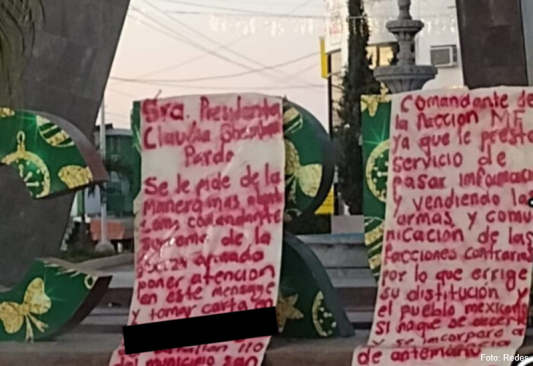 Sra. Presidenta
Claudia Sheinbaum
Pardo
Se le pide de la
manera mas atenta
como comandante
suprema de la
fuerza armada
poner atencion
en este mensaje
y tomar carta en
batallon 110
del municipio
Comandante de
la Faccion MF
ya que le presta
servicio de
pasar informacion
y vendiendo las
armas y comu
nicacion de las
facciones contrarias
por lo que
su distitución y
el pueblo mexicano
si
y se
de antemano
Foto: Redes